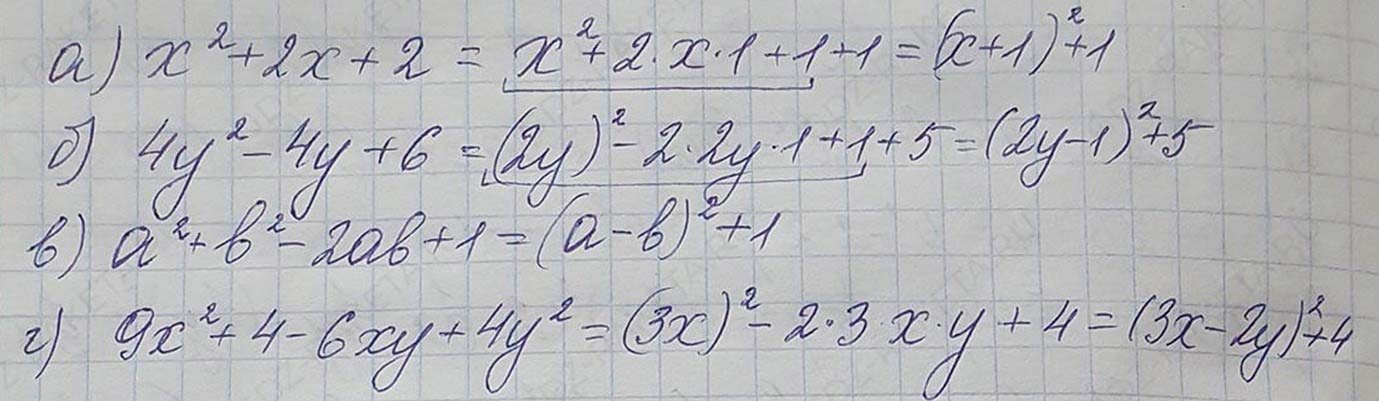 а) x² + 2x + 2 = x² + 2·x·1 + 1 + 1 = (x+1)² + 1
б) 4y² - 4y + 6 = (2y)² - 2·2y·1 + 1 + 5 = (2y-1)² + 5
в) a² + b² - 2ab + 1 = (a-b)² + 1
г) 9x² + 4 - 6xy + 4y² = (3x)² - 2·3·x·y + 4 = (3x-2y)² + 4